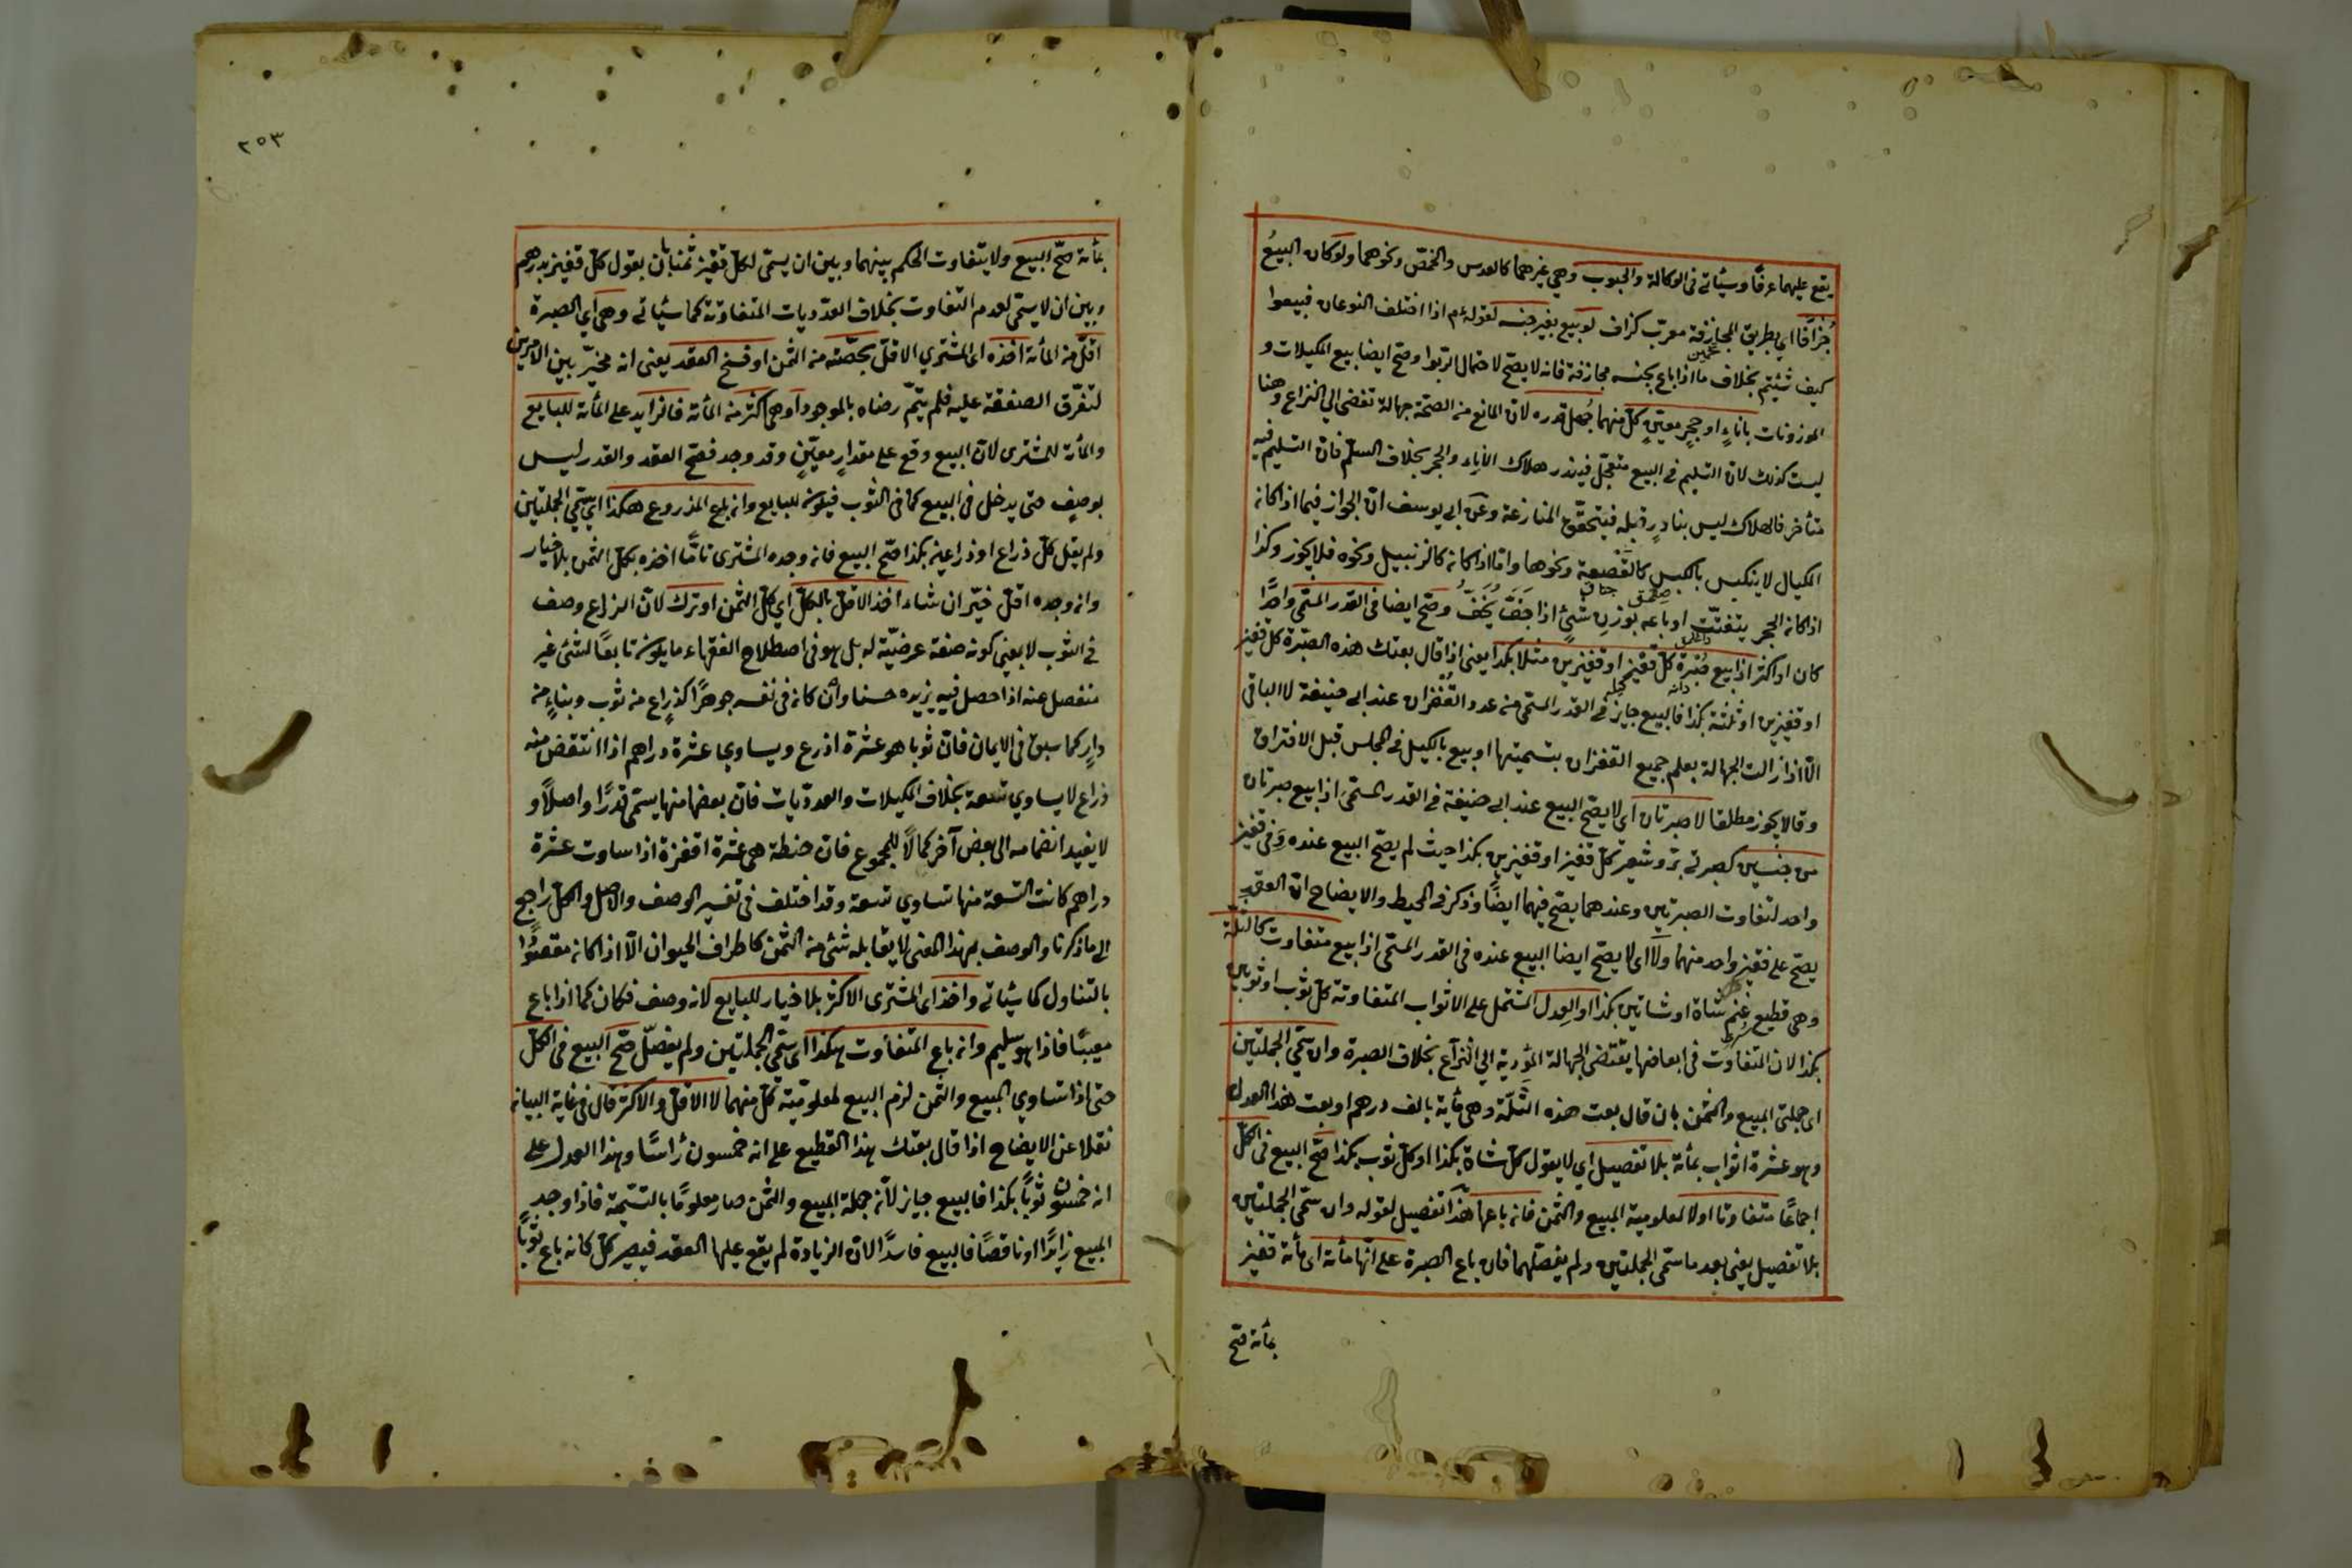 يقع عليهما عرفًا وسيأتي في الوكالة والحبوب وهي غيرهما كالعدس والحمّص ونحوهما ولوكان البيعُ
جُزافًا اي بطريق المجازفة معرّب كزاف لو بيع بغير جنسه لقوله م اذا اختلف النوعان فبيعوا
تخمين
كيف شئتم بخلاف ما اذا باع بجنسه مجازفة فانه لا يصحّ لاحتمال الربوا وصحّ ايضا بيع المكيلات و
الموزونات باناءٍ او حجرٍ معيّنٍ كلّ منهما جُهل قدره لانّ المانع من الصحّة جهالة تفضى الي النزاع وهنا
ليست كذلك لانّ التسليم في البيع متعجّل فيندر هلاك الاناء والحجر بخلاف السلم فانّ التسليم فيه
متأخر فالهلاك ليس بنادرٍ قبله فيتحقّق المنازعة وعن ابي يوسف انّ الجواز فيما اذا كانه
المكيال لا ينكبس بالكبس كالقَصْعة ونحوها وامّا اذا كانه كالزنبيل ونحوه فلا يجوز وكذا
اذا كانه الحجر يتفتّت او باعه بوزن شئٍ اذا جَفَّ يَخِفُّ وصحّ ايضا في القدر المسمّى واحدًا
كان او اكثر اذا بيع صُبْرة كلّ قفيز او قفيزين مثلا بكذا يعنى اذا قال بعتك هذه الصبرة كلّ قفيز
او قفيزين او ثلثة بكذا فالبيع جايز في القدر المسمّى من عدد القُفْزان عند ابي حنيفة لا الباقي
الّا اذا زالت الجهالة بعلم جميع القفزان بتسميتها او بيع بالكيل في المجلس قبل الافتراق
وقالا يجوز مطلقا لا صبرتان اى لا يصحّ البيع عند ابي حنيفة في القدر المسمّى اذا بيع صبرتان
من جنسين كصبرتي برّ وشعير كلّ قفيز او قفيزين بكذا حيث لم يصحّ البيع عنده في قفيز
واحد لتفاوت الصبرتين وعندهما يصحّ فيهما ايضًا وذكر في المحيط والايضاح انّ العقد
يصحّ على قفيز واحد منهما ولا اى لا يصحّ ايضا البيع عنده في القدر المسمّى اذا بيع متفاوت كالثلّة
وهي قطيع غنم شاة او شاتين بكذا او العدل المشتمل على الاثواب المتفاوتة كلّ ثوب او ثوبين
بكذا لان التفاوت في ابعاضها يقتضى الجهالة المؤدية الي النزاع بخلاف الصبرة وان سمّي الجملتين
اى جملتى المبيع والثمن بان قال بعت هذه الثَّلّة وهى مأية بالف درهم او بعت هذا العدل
وهو عشرة اثواب بمأئة بلا تفصيل اي لا يقول كلّ شاة بكذا او كلّ ثوب بكذا صحّ البيع في الكلّ
اجماعًا متفاوتا اولا لمعلومية المبيع والثمن فانه باعها هذا تفصيل لقوله وان سمّى الجملتين
بلا تفصيل يعنى بعد ما سمّى الجملتين ولم يفصّلهما فان باع الصبرة على انّها مأئة اى مأئة قفيز
بمأئة صحّ
٢٥٣
بمأئة صحّ البيع ولا يتفاوت الحكم بينهما وبين ان يسمّى لكلّ قفيز ثمنا بان يقول كلّ قفيز بدرهم
وبين ان لا يسمّى لعدم التفاوت بخلاف العدديات المتفاوتة كما سيأتي وهى اي الصبرة
اقلّ من المأئة اخذه اى المشتري الاقلّ بحصّته من الثمن او فسخ العقد يعنى انه مخيّر بين الامرين
لتفرّق الصفقة عليه فلم يتمّ رضاه بالموجود او هى اكثر من المأئة فالزايد على المأئة للبايع
والمأئة للمشترى لانّ البيع وقع على مقدارٍ معيّنٍ وقد وجد فصحّ العقد والقدر ليس
بوصف حتى يدخل في البيع كما في الثوب فيكون للبايع وانه باع المذروع هكذا اي سمّي الجملتين
ولم يقل كلّ ذراع او ذراعين بكذا صحّ البيع فانه وجده المشترى تامّا اخذه بكلّ الثمن بلا خيار
وانه وجده اقلّ خيّر ان شاء اخذ الاقلّ بالكلّ اي كلّ الثمن او ترك لانّ الذراع وصف
في الثوب لا يعنى كونه صفة عرضيّة له بل هو في اصطلاح الفقهاء ما يكون تابعًا لشئ غير
منفصل عنه اذا حصل فيه يزيده حسنا وان كانه في نفسه جوهرًا كذراع من ثوب وبناءٍ من
دارٍ كما سبق في الايمان فانّ ثوبا هو عشرة اذرع ويساوي عشرة دراهم اذا انتقض منه
ذراع لا يساوي تسعة بخلاف المكيلات والعدديّات فانّ بعضها منها يسمّى قدرًا واصلًا و
لا يفيد انضمامه الى بعض آخر كمالًا للمجموع فان حنطة هى عشرة اقفزة اذا ساوت عشرة
دراهم كانت التسعة منها تساوي تسعة وقد اختلف في تفسير الوصف والاصل والكلّ راجع
الي ما ذكرنا والوصف بهذا المعنى لا يقابله شئ من الثمن كاطراف الحيوان الّا اذا كانه مقصودًا
بالتناول كما سيأتي واخذ اى المشترى الاكثر بلا خيار للبايع لانه وصف فكان كما اذا باع
معيبًا فاذا هو سليم وانه باع المتفاوت هكذا اى سمّي الجملتين ولم يفصّل صحّ البيع في الكلّ
حتى اذا تساوي المبيع والثمن لزم البيع لمعلوميّة كلّ منهما لا الاقلّ والاكثر قال في غاية البيانه
نقلا عن الايضاح اذا قال بعتك هذا القطيع على انه خمسون رأسًا وهذا العدل على
انه خمسون ثوبًا بكذا فالبيع جايز لأنّه جملة المبيع والثمن صار معلومًا بالتسمية فاذا وجد
المبيع زايدًا او ناقصًا فالبيع فاسدًا لانّ الزيادة لم يقع عليها العقد فيصير كلّ كانه باع ثوبًا